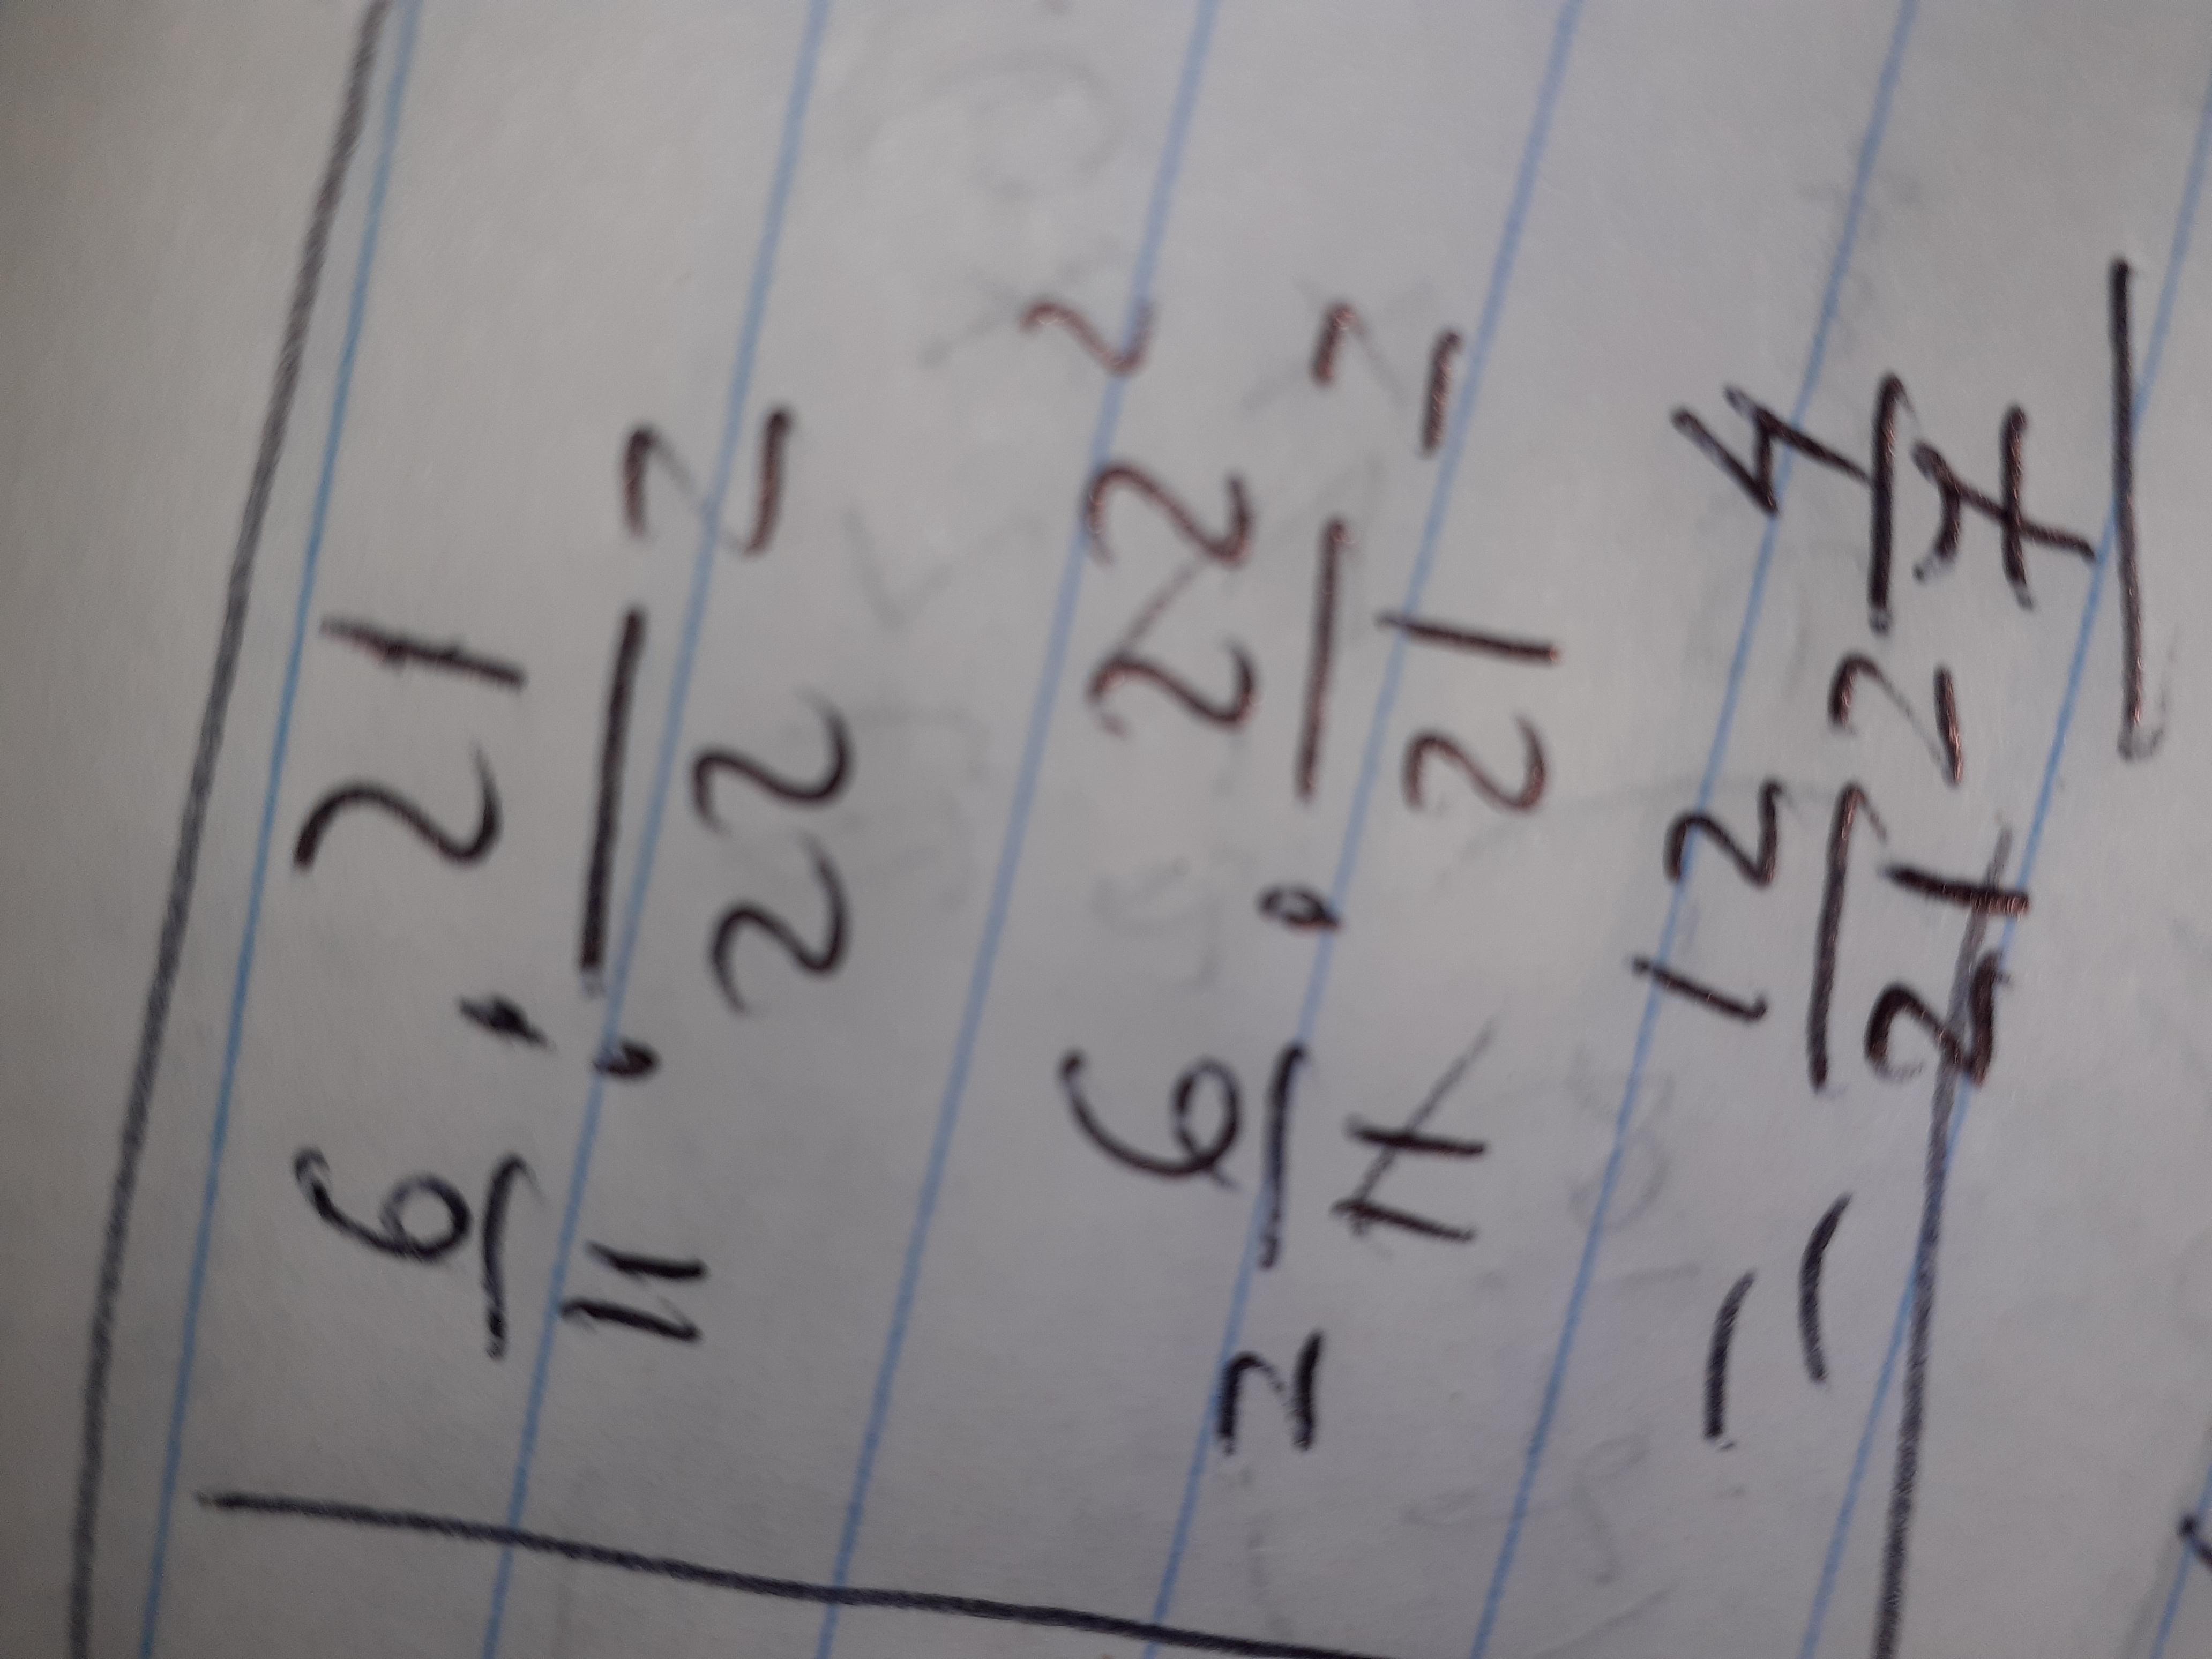 6/11 : 21/22 =
= 6/11 · 22²/21 =
= 12/21 = 4/7